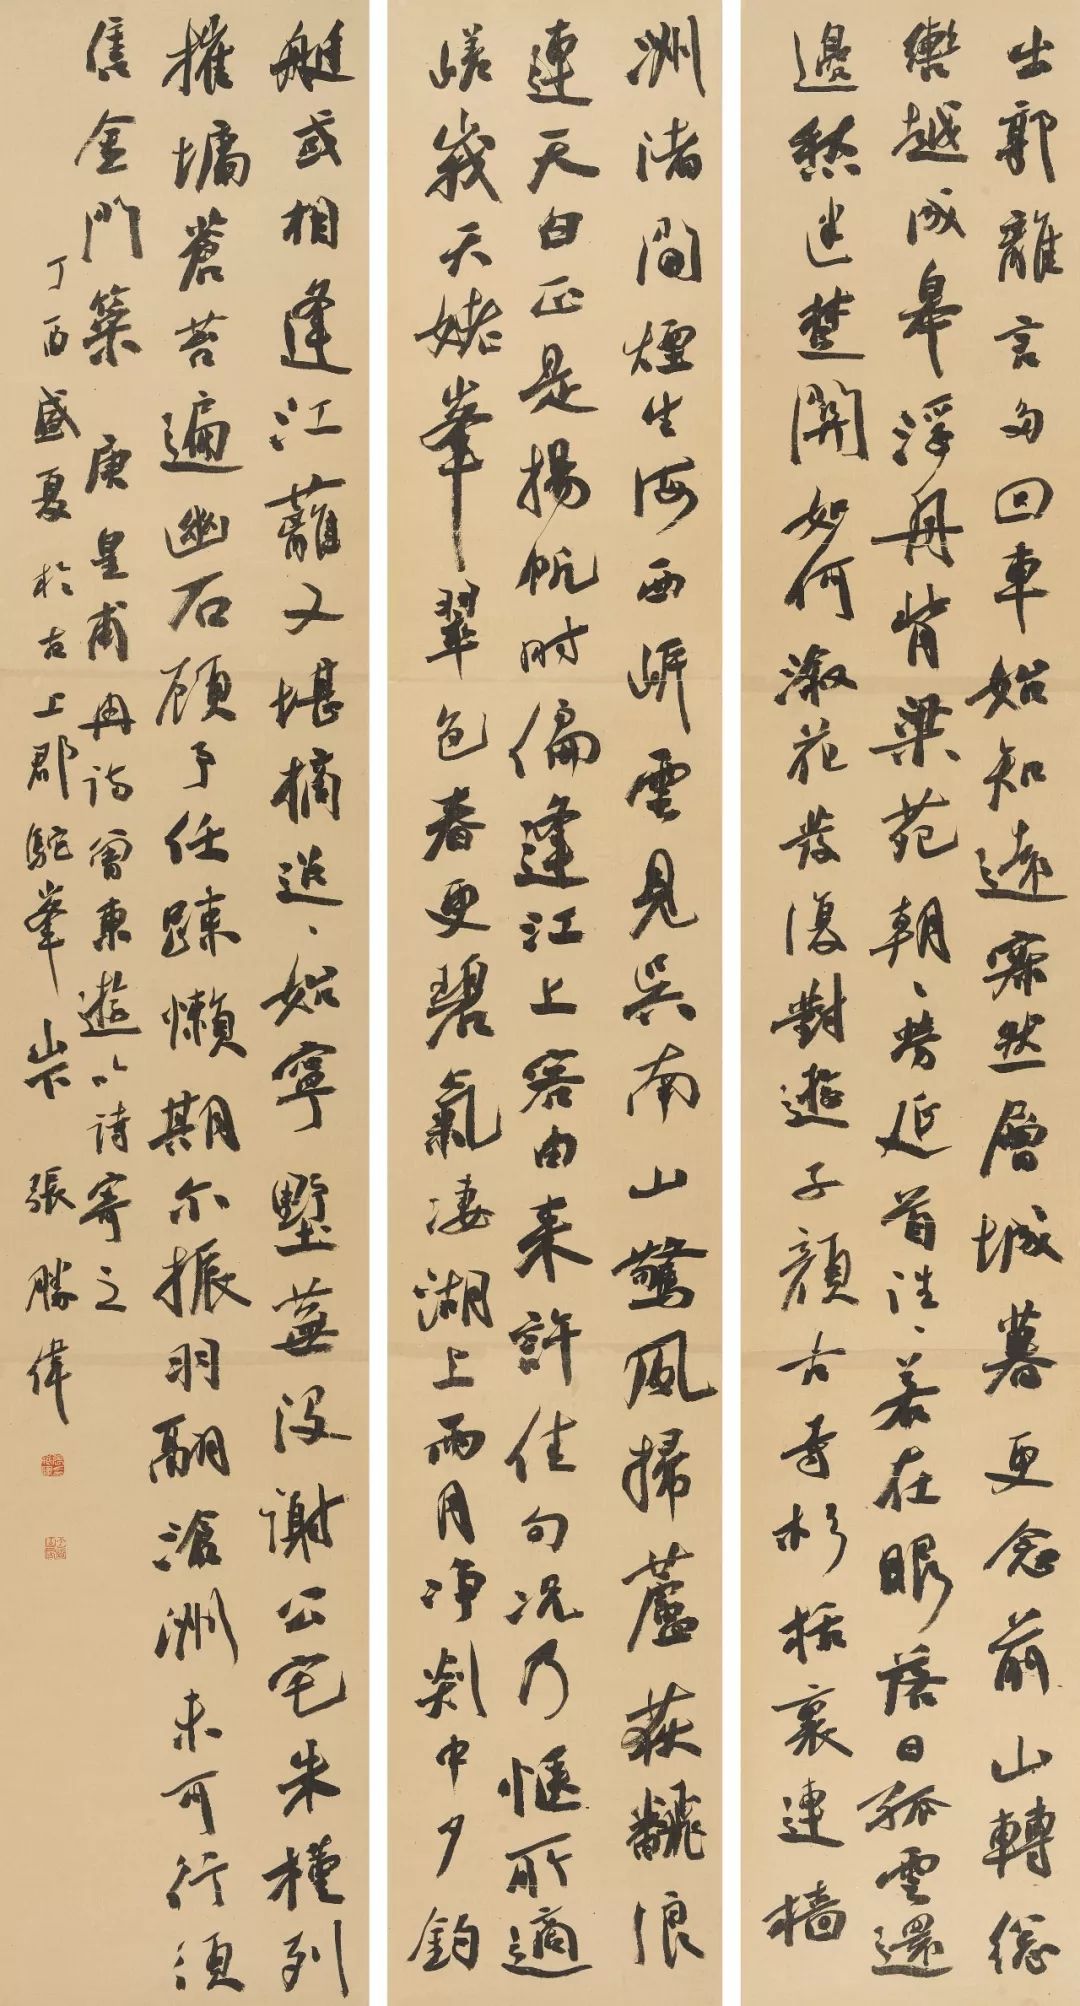 出郭離言多回車始知遠寂然層城暮更念前山轉總
轡越成皋浮舟背梁苑朝朝勞延首往往若在眼落日孤雲還
邊愁迷楚關如何溆花發復對遊子顏古寺杉栝裏連檣
洲渚間煙生海西岸雲見吳南山驚風掃蘆荻翻浪
連天白正是揚帆時偏逢江上客由來許佳句況乃愜所適
嵯峨天姥峯翠色春更碧氣淒湖上雨月淨剡中夕釣
艇或相逢江蘺又堪摘迢迢始寧墅蕪沒謝公宅朱槿列
摧墉蒼苔遍幽石顧予任疎懶期爾振羽翮滄洲未可行須
售金門策 庚皇甫冉詩曾東遊以詩寄之
丁酉盛夏於古上郡駝峯山下張勝偉